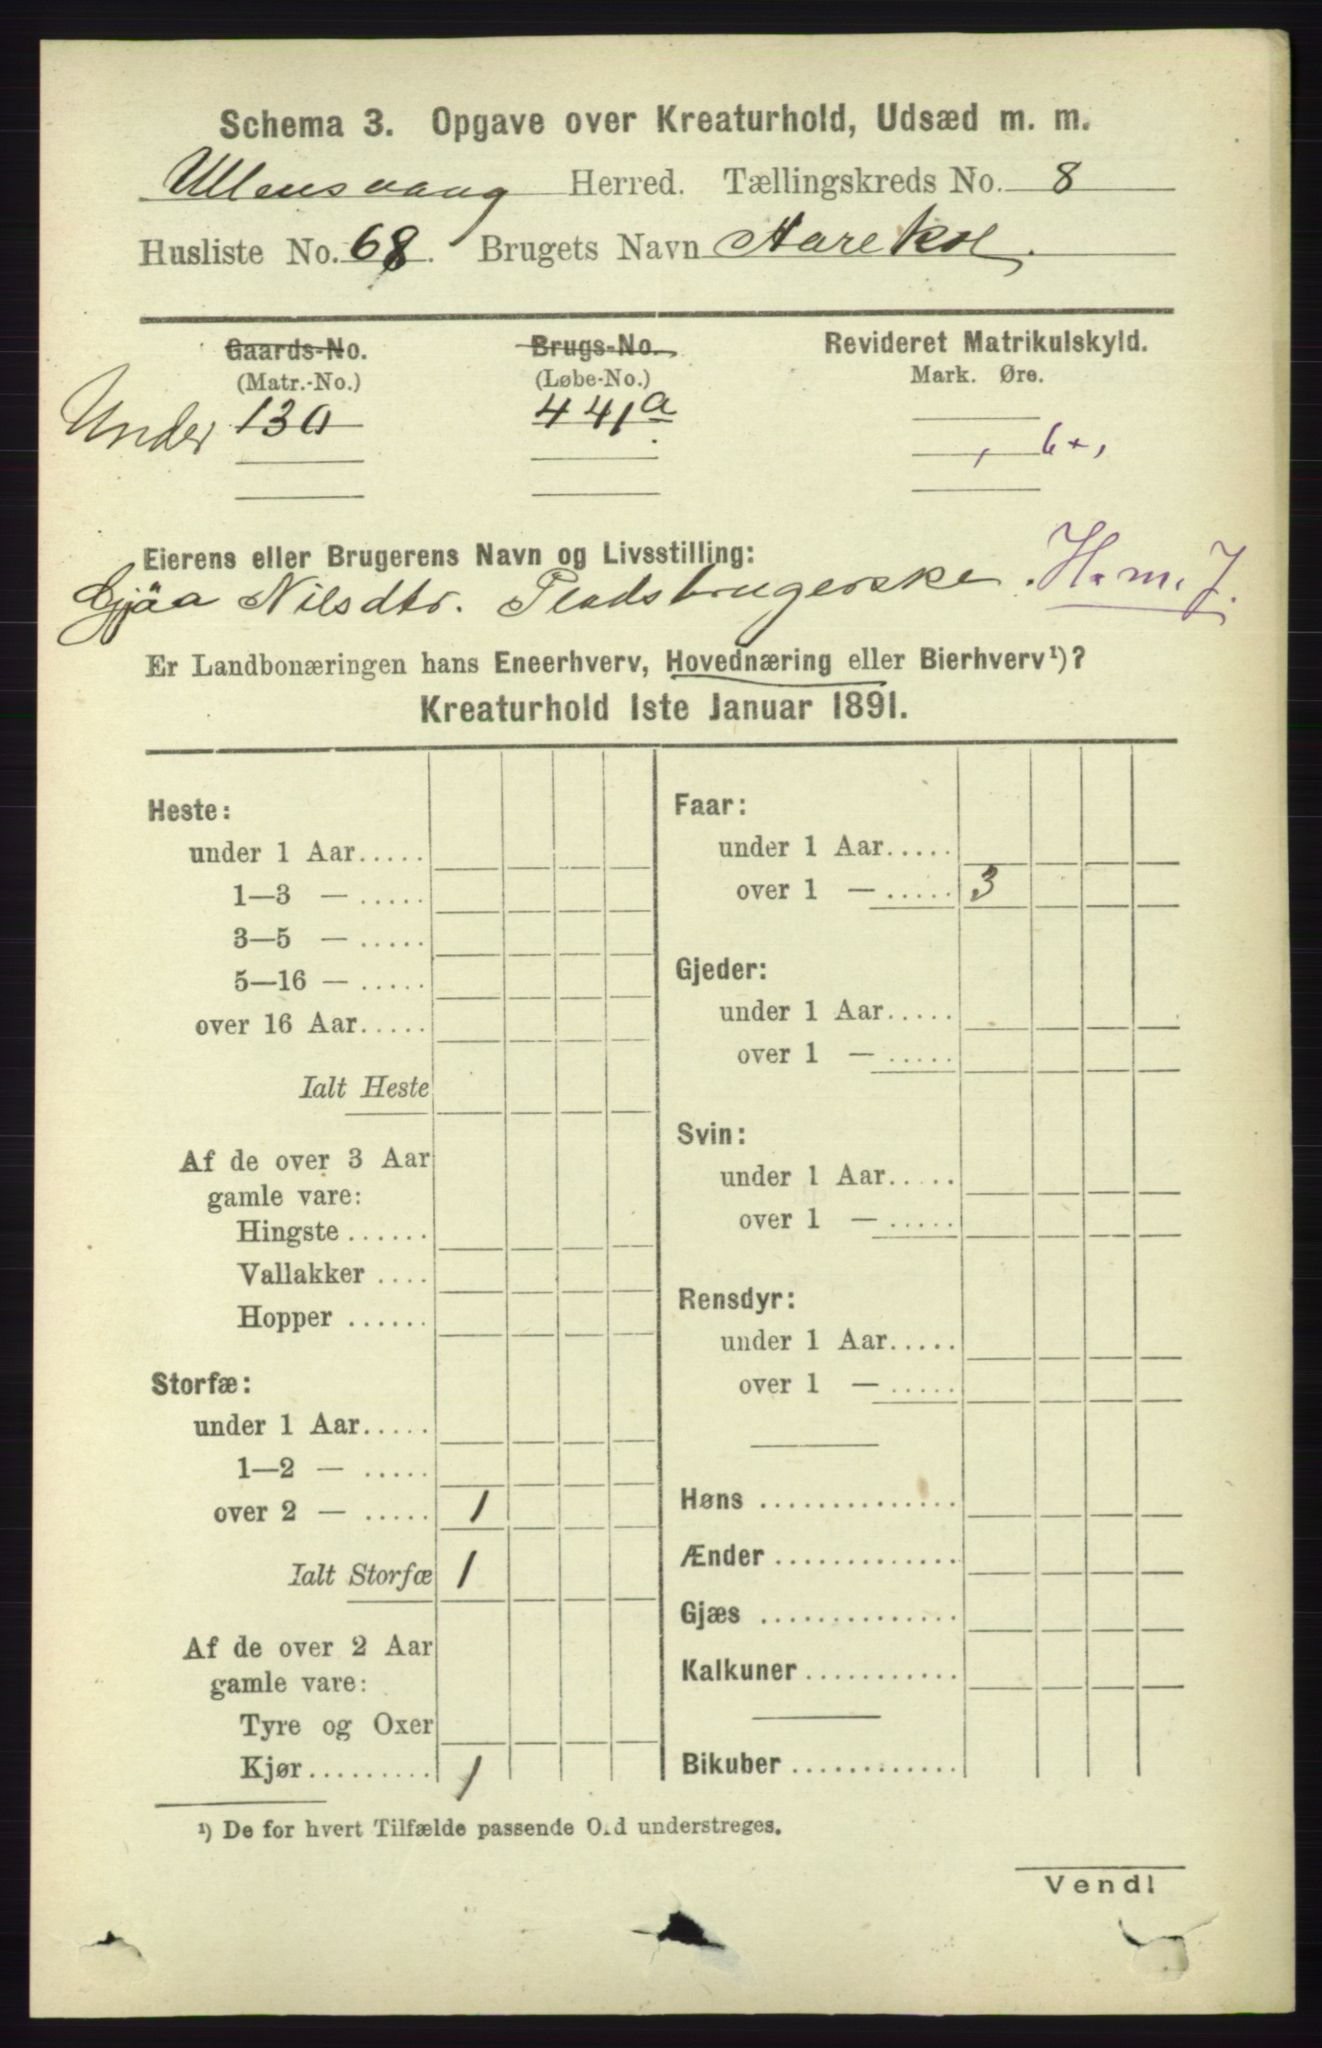 Schema 3. Opgave over Kreaturhold, Udsæd m. m.
Ullensvang Herred. Tællingskreds No. 8
Husliste No. 68. Brugets Navn Aarekol.
Gaards-No. Brugs-No. Revideret Matrikulskyld.
(Matr.-No.) (Løbe-No.) Mark. Øre.
Under 130 441a
Eierens eller Brugerens Navn og Livsstilling:
Gjöa Nilsdtr. Pladsbrugerske. H. m. J.
Er Landbonæringen hans Eneerhverv, Hovednæring eller Bierhverv¹)?
Kreaturhold 1ste Januar 1891.
Heste:
under 1 Aar.....
1—3 — .....
3—5 — .....
5—16 — .....
over 16 Aar.....
Ialt Heste
Af de over 3 Aar
gamle vare:
Hingste ......
Vallakker ....
Hopper ......
Storfæ:
under 1 Aar.....
1—2 — .....
over 2 — ..... 1
Ialt Storfæ 1
Af de over 2 Aar
gamle vare:
Tyre og Oxer
Kjør......... 1
Faar:
under 1 Aar.....
over 1 — ..... 3
Gjeder:
under 1 Aar.....
over 1 — .....
Svin:
under 1 Aar.....
over 1 — .....
Rensdyr:
under 1 Aar.....
over 1 — .....
Høns ..............
Ænder .............
Gjæs ..............
Kalkuner ...........
Bikuber ............
¹) De for hvert Tilfælde passende Ord understreges.
Vend!